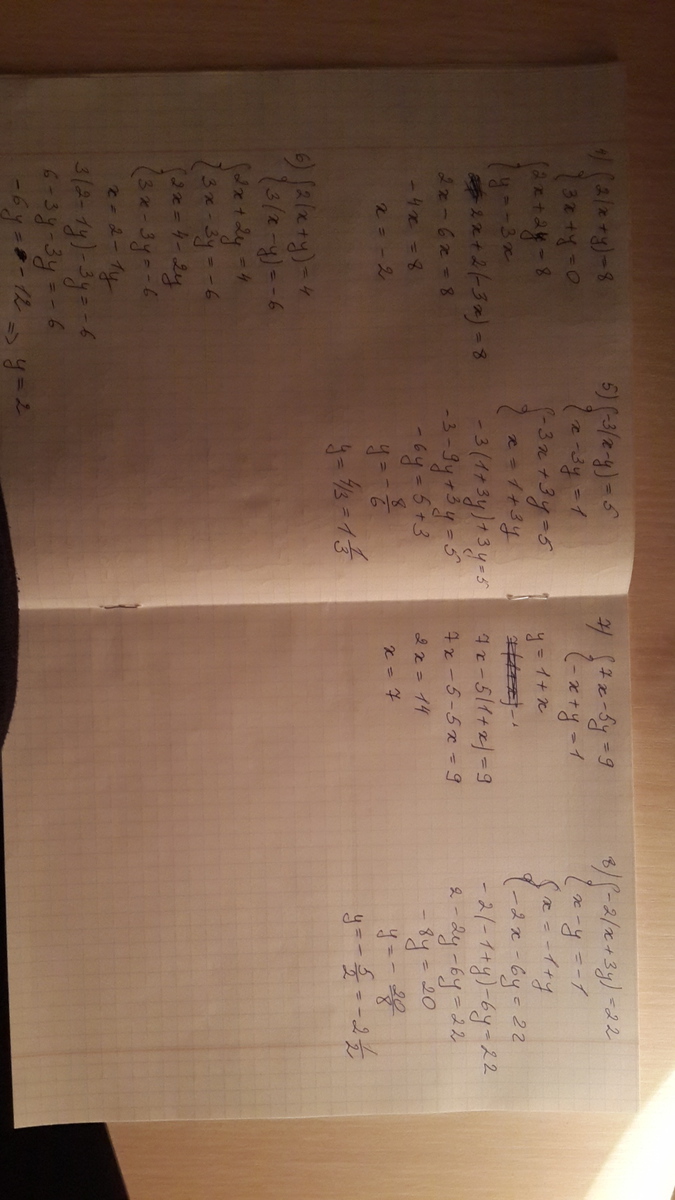 4) { 2(x+y)=8
{ 3x+y=0
{ 2x+2y=8
{ y=-3x
2x+2(-3x)=8
2x-6x=8
-4x=8
x=-2
6) { 2(x+y)=4
{ 3(x-y)=-6
{ 2x+2y=4
{ 3x-3y=-6
{ 2x=4-2y
{ 3x-3y=-6
x=2-1y
3(2-1y)-3y=-6
6-3y-3y=-6
-6y=-12 => y=2
5) { -3(x-y)=5
{ x-3y=1
{ -3x+3y=5
{ x=1+3y
-3(1+3y)+3y=5
-3-9y+3y=5
-6y=5+3
y=-8/6
y=4/3=1 1/3
7) { 7x-5y=9
{ -x+y=1
y=1+x
7x-5(1+x)=9
7x-5-5x=9
2x=14
x=7
8) { -2(x+3y)=22
{ x-y=-1
{ x=-1+y
{ -2x-6y=22
-2(-1+y)-6y=22
2-2y-6y=22
-8y=20
y=-20/8
y=-5/2=-2 1/2